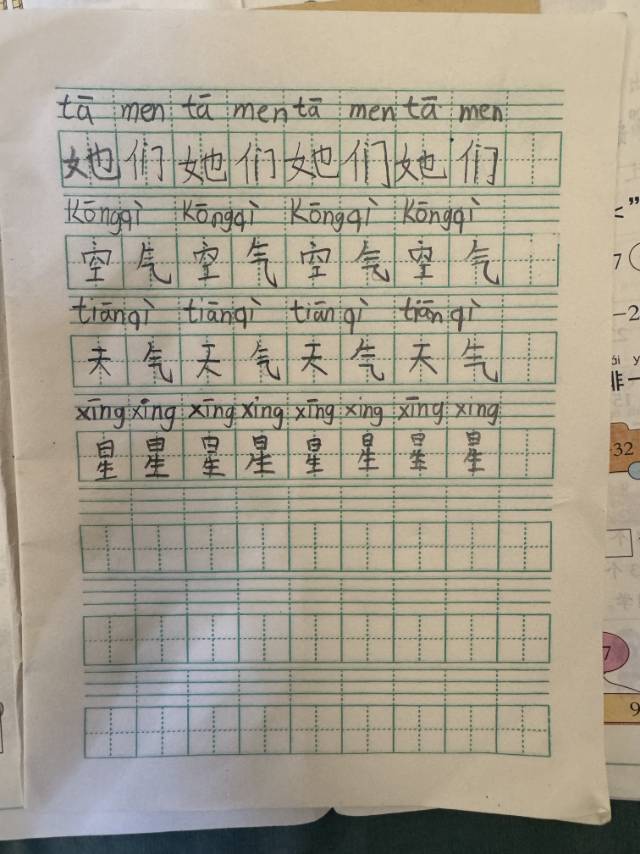 tā men tā men tā men tā men
她们她们她们她们
Kōngqì Kōngqì Kōngqì Kōngqì
空气空气空气空气
tiānqì tiānqì tiānqì tiānqì
天气天气天气天气
xīng xing xīng xing xīng xing xīng xing
星星星星星星星星
7
-2
32
个
7
9